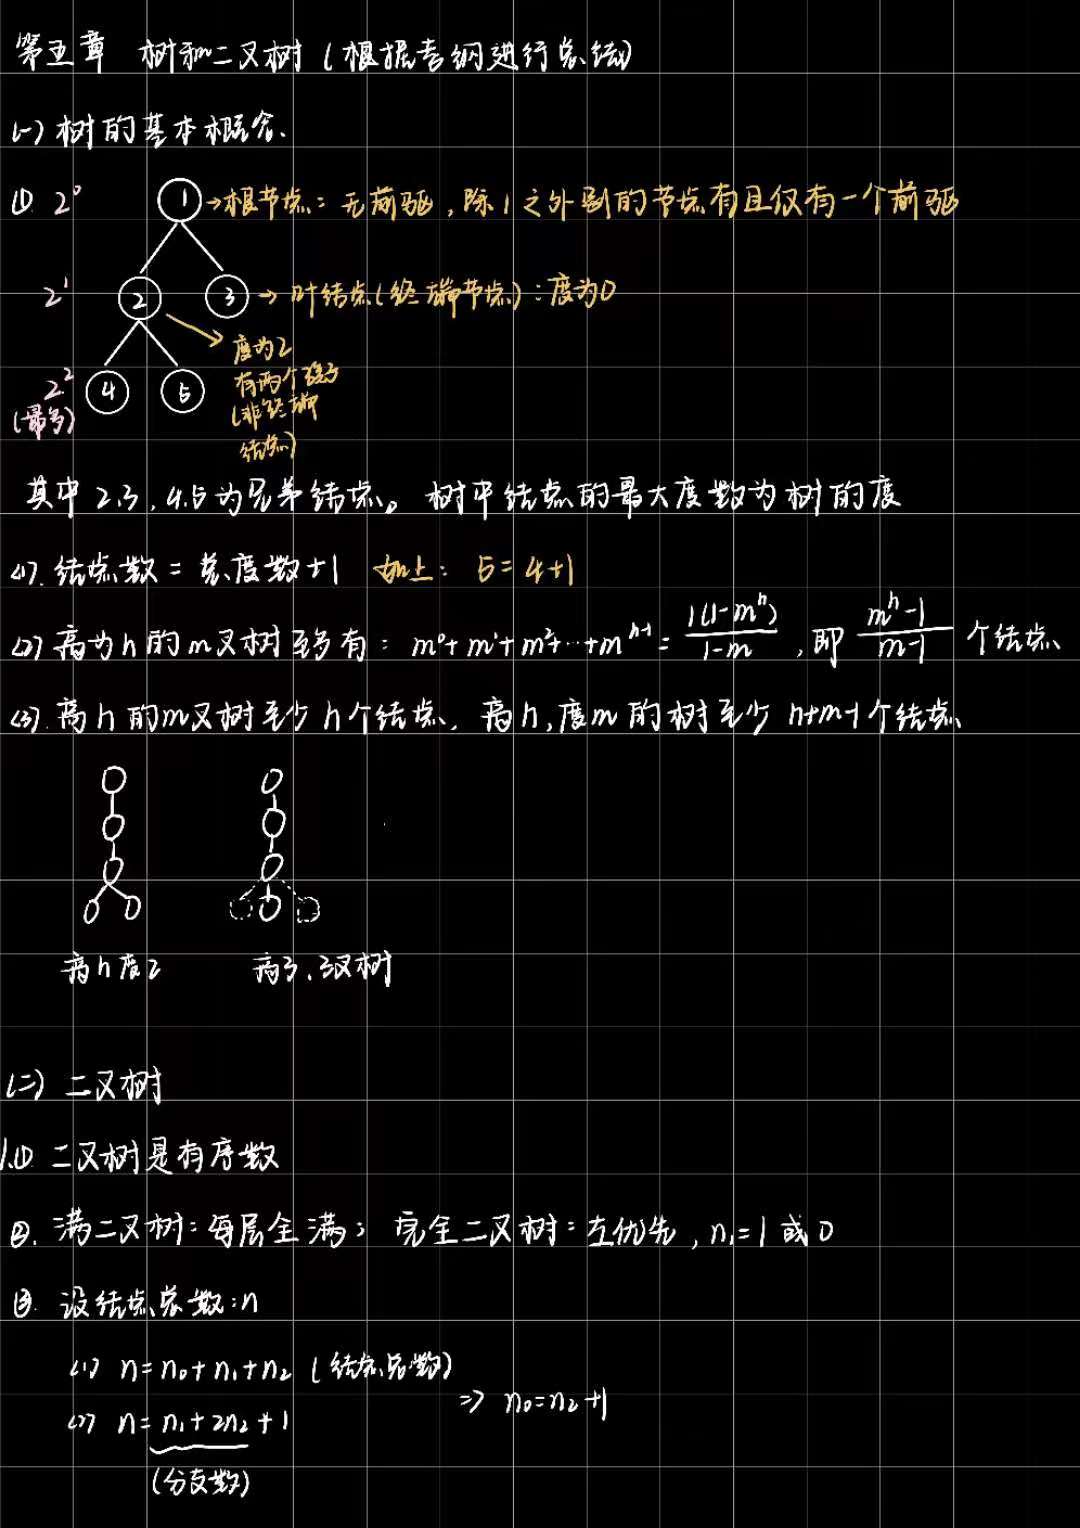 第五章 树和二叉树 (根据考纲进行总结)
(一) 树的基本概念.
① 2⁰ 1 →根节点: 无前驱, 除1之外别的节点有且仅有一个前驱
2¹ 2 3 → 叶结点(终端节点): 度为0
度为2
2² 4 5 有两个孩子
(最多) (非终端
结点)
其中2.3, 4.5为兄弟结点。 树中结点的最大度数为树的度
(1). 结点数 = 总度数+1 如上: 5=4+1
(2) 高为h的m叉树至多有: m⁰+m¹+m²+…+m^(h-1) = 1(1-m^h)/(1-m), 即 (m^h-1)/(m-1) 个结点
(3). 高h的m叉树至少h个结点, 高h,度m的树至少 h+m-1个结点
高h度2 高3.3叉树
(二) 二叉树
1.① 二叉树是有序数
②. 满二叉树: 每层全满; 完全二叉树: 左优先, n₁=1或0
③. 设结点总数: n
(1) n=n₀+n₁+n₂ (结点总数)
⇒ n₀=n₂+1
(2) n=n₁+2n₂+1
(分支数)